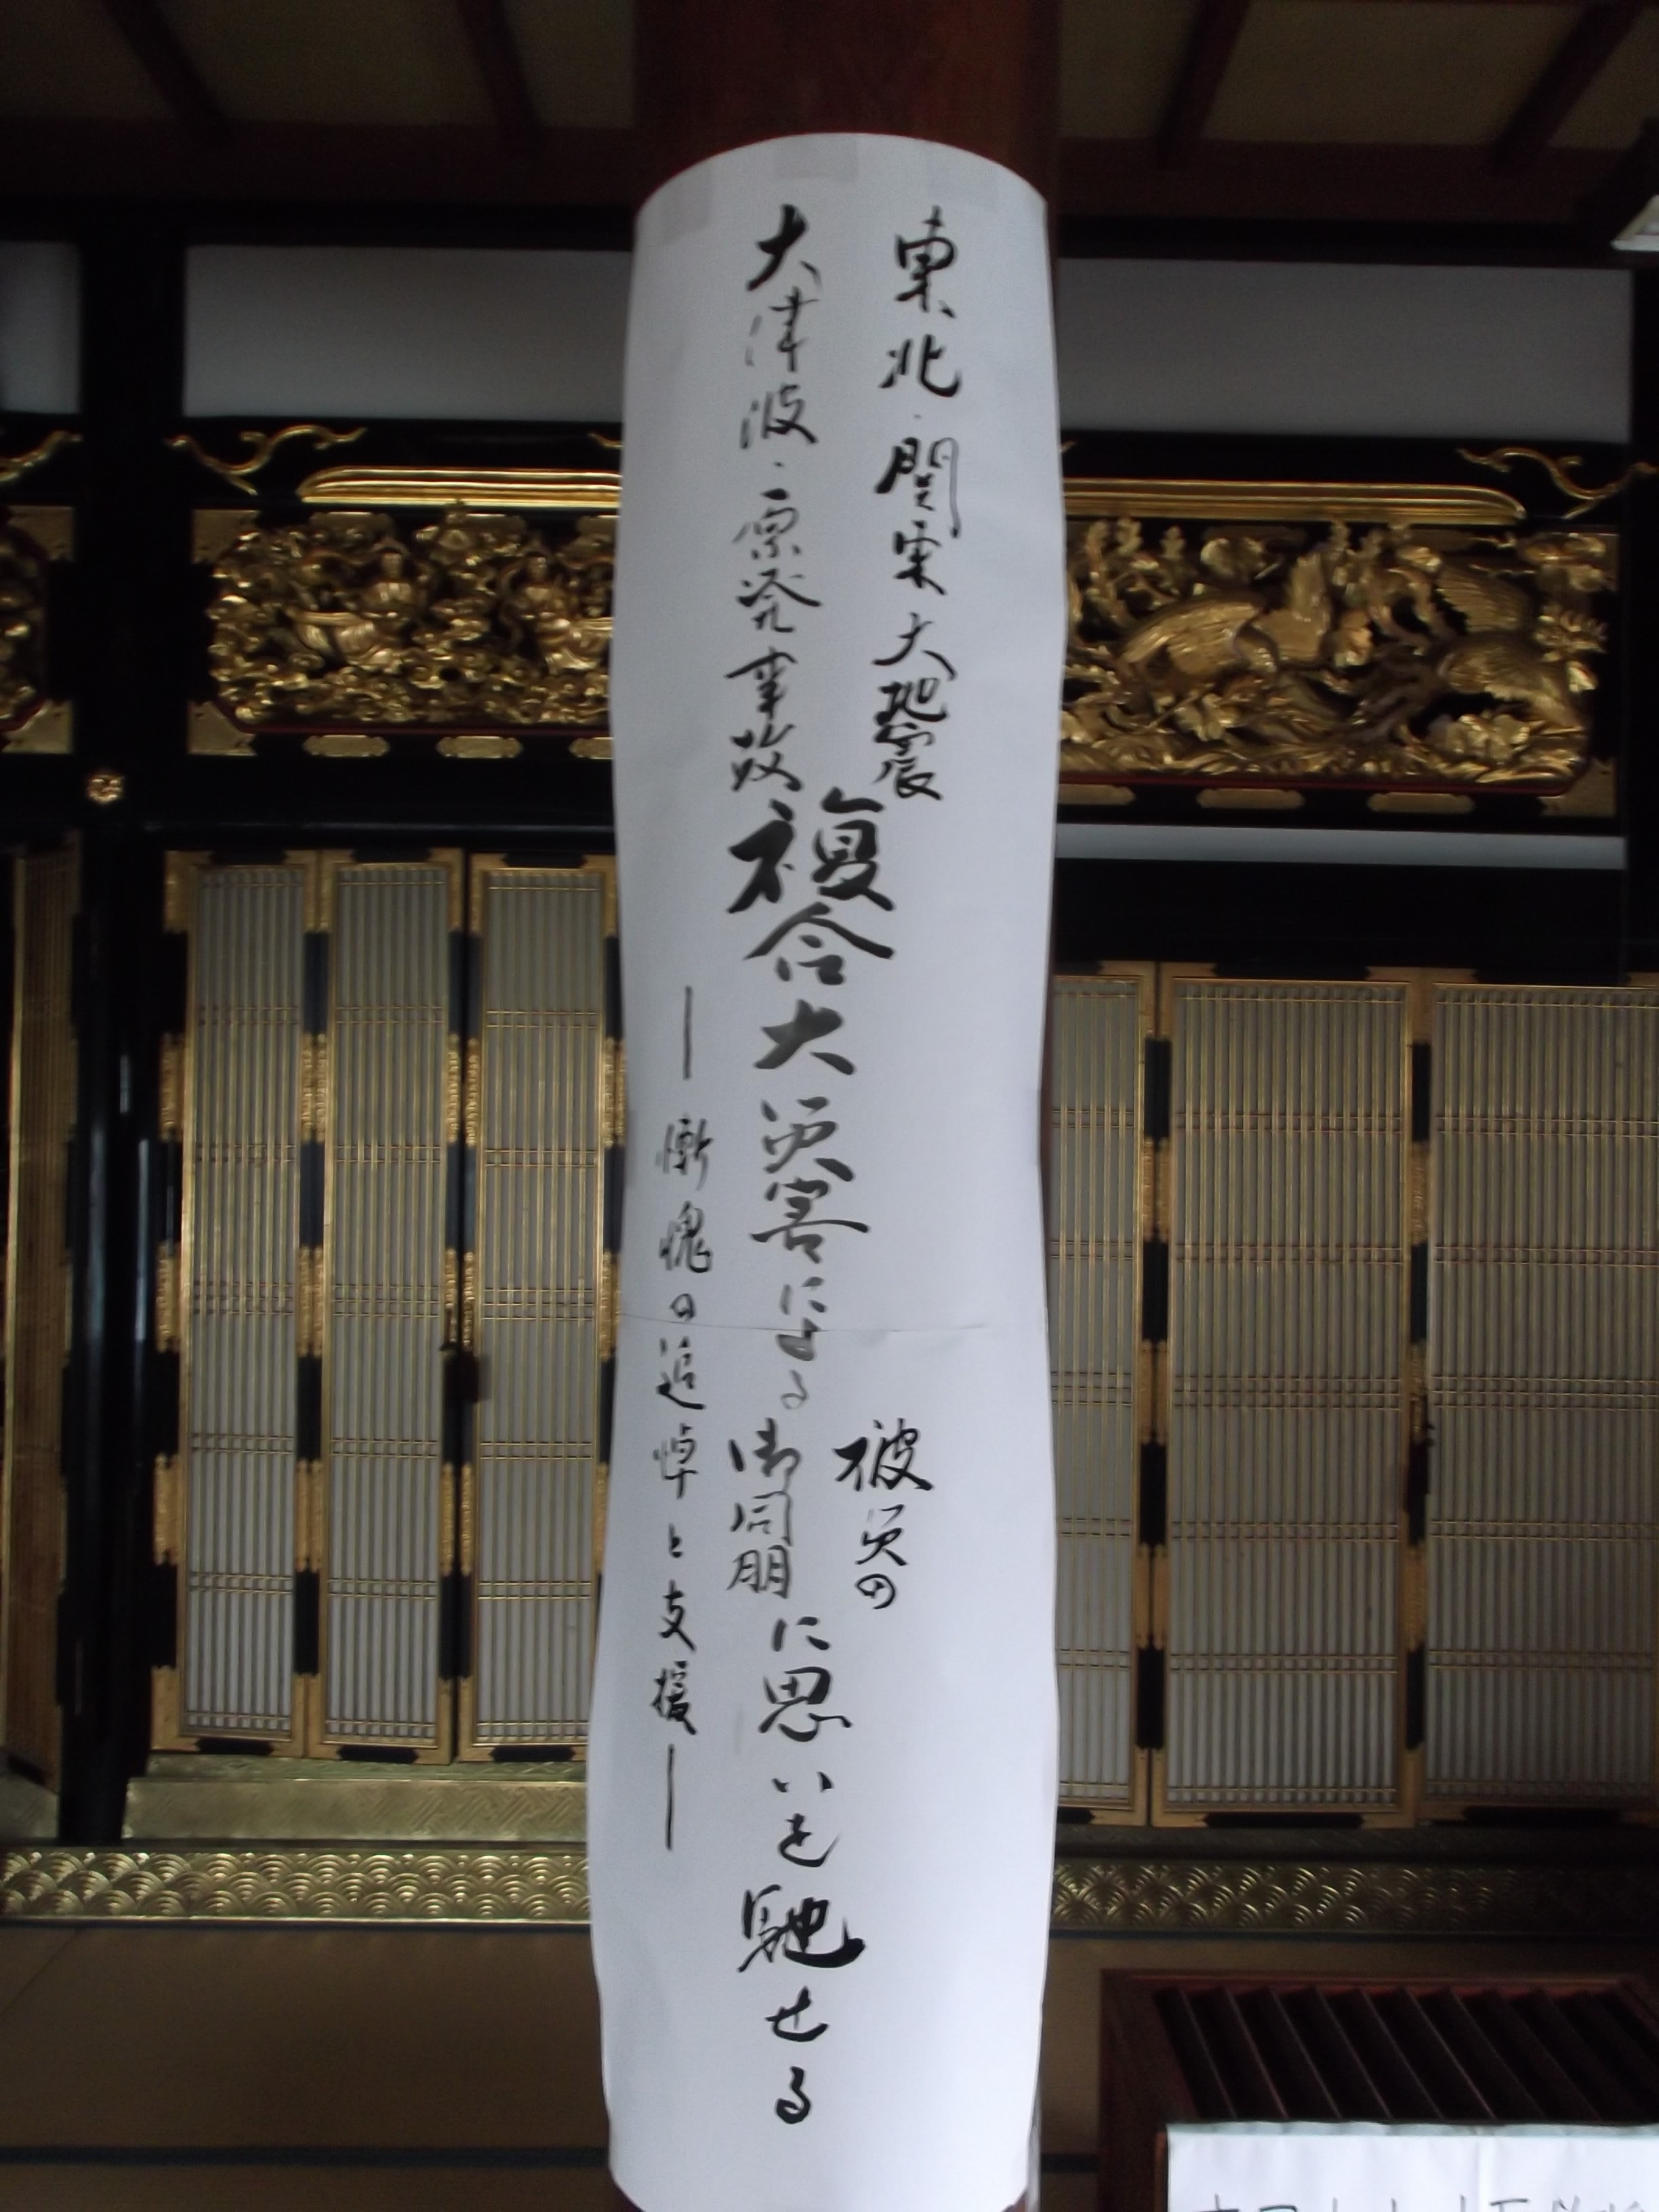 東北・関東大地震
大津波・原発事故
複合大災害による
被災の
御同朋
に思いを馳せる
― 慚愧の追悼と支援 ―